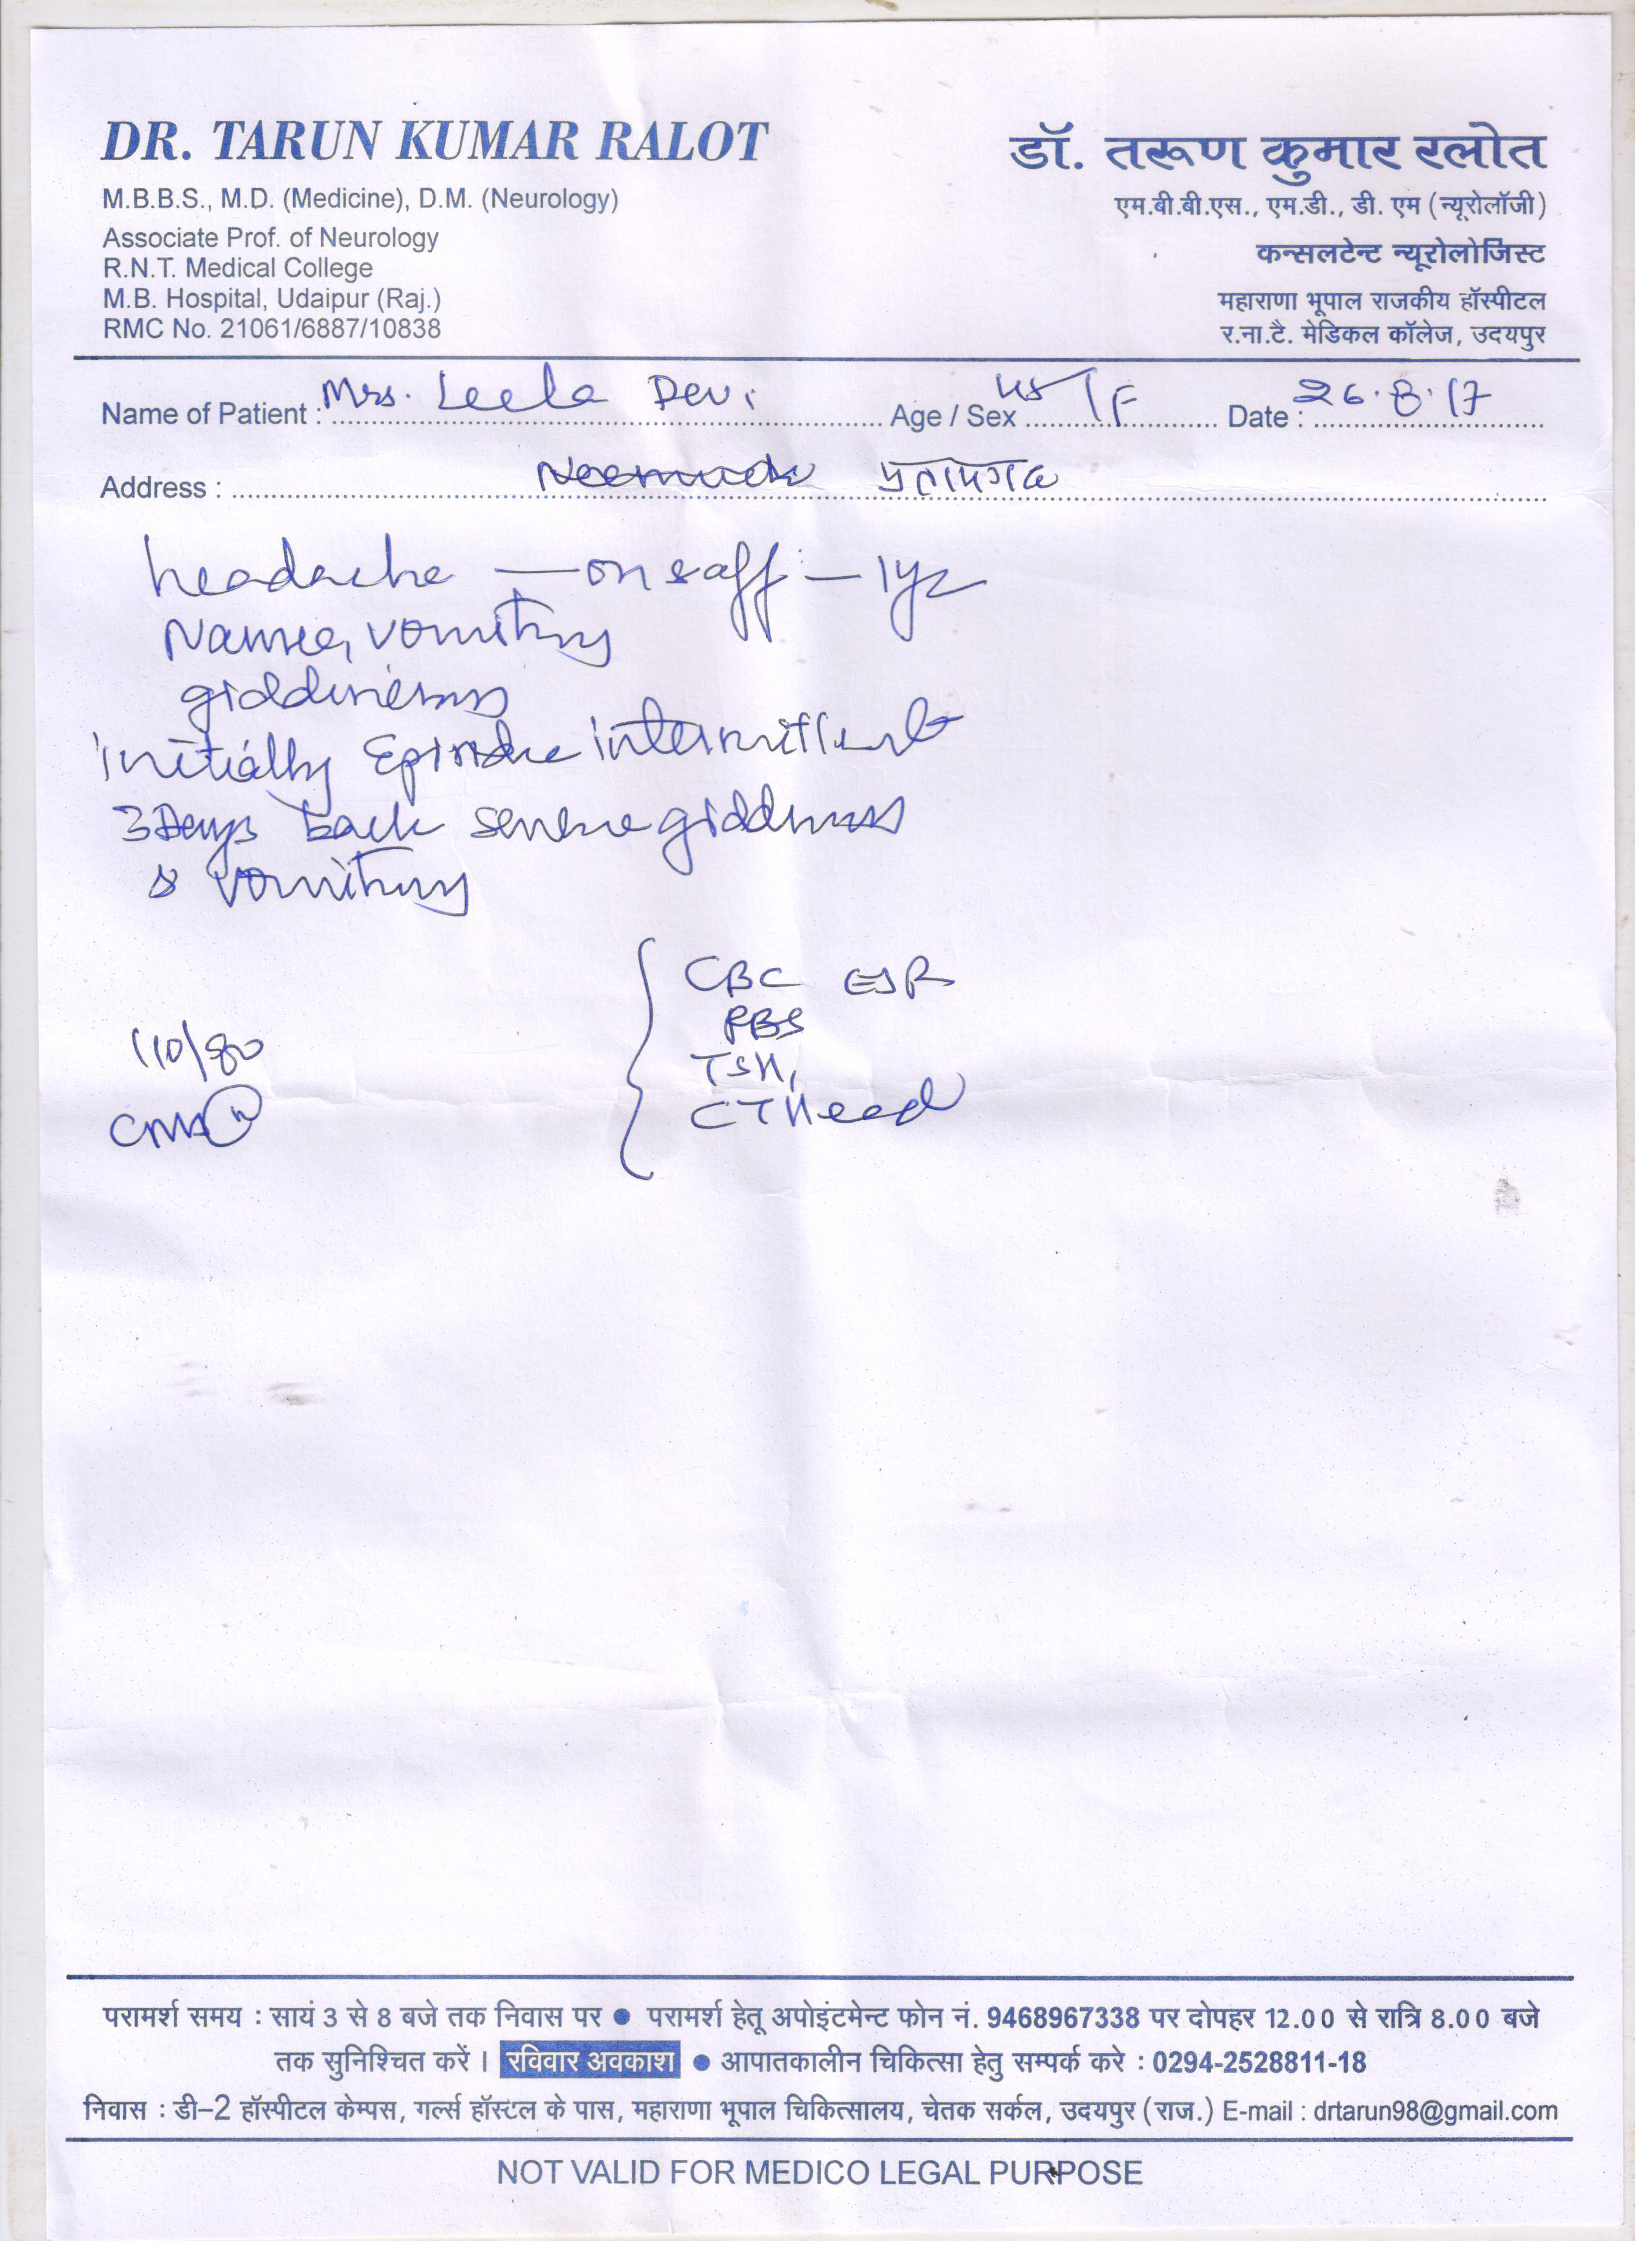 DR. TARUN KUMAR RALOT
M.B.B.S., M.D. (Medicine), D.M. (Neurology)
Associate Prof. of Neurology
R.N.T. Medical College
M.B. Hospital, Udaipur (Raj.)
RMC No. 21061/6887/10838
डॉ. तरूण कुमार रलोत
एम.बी.बी.एस., एम.डी., डी. एम (न्यूरोलॉजी)
कन्सलटेन्ट न्यूरोलोजिस्ट
महाराणा भूपाल राजकीय हॉस्पीटल
र.ना.टै. मेडिकल कॉलेज, उदयपुर
Name of Patient : Mrs. Leela Devi Age / Sex 45 / F Date : 26.8.17
Address : प्रतापगढ
headache — on & off — 1yr
Nausea, vomiting
giddiness
initially Episodic intermittent
3 Days back severe giddiness
& vomiting
CBC ESR
RBS
110/80
TSH,
CT Head
CNS (N)
परामर्श समय : सायं 3 से 8 बजे तक निवास पर ● परामर्श हेतू अपोइंटमेन्ट फोन नं. 9468967338 पर दोपहर 12.00 से रात्रि 8.00 बजे
तक सुनिश्चित करें । रविवार अवकाश ● आपातकालीन चिकित्सा हेतु सम्पर्क करे : 0294-2528811-18
निवास : डी–2 हॉस्पीटल केम्पस, गर्ल्स हॉस्टल के पास, महाराणा भूपाल चिकित्सालय, चेतक सर्कल, उदयपुर (राज.) E-mail : drtarun98@gmail.com
NOT VALID FOR MEDICO LEGAL PURPOSE